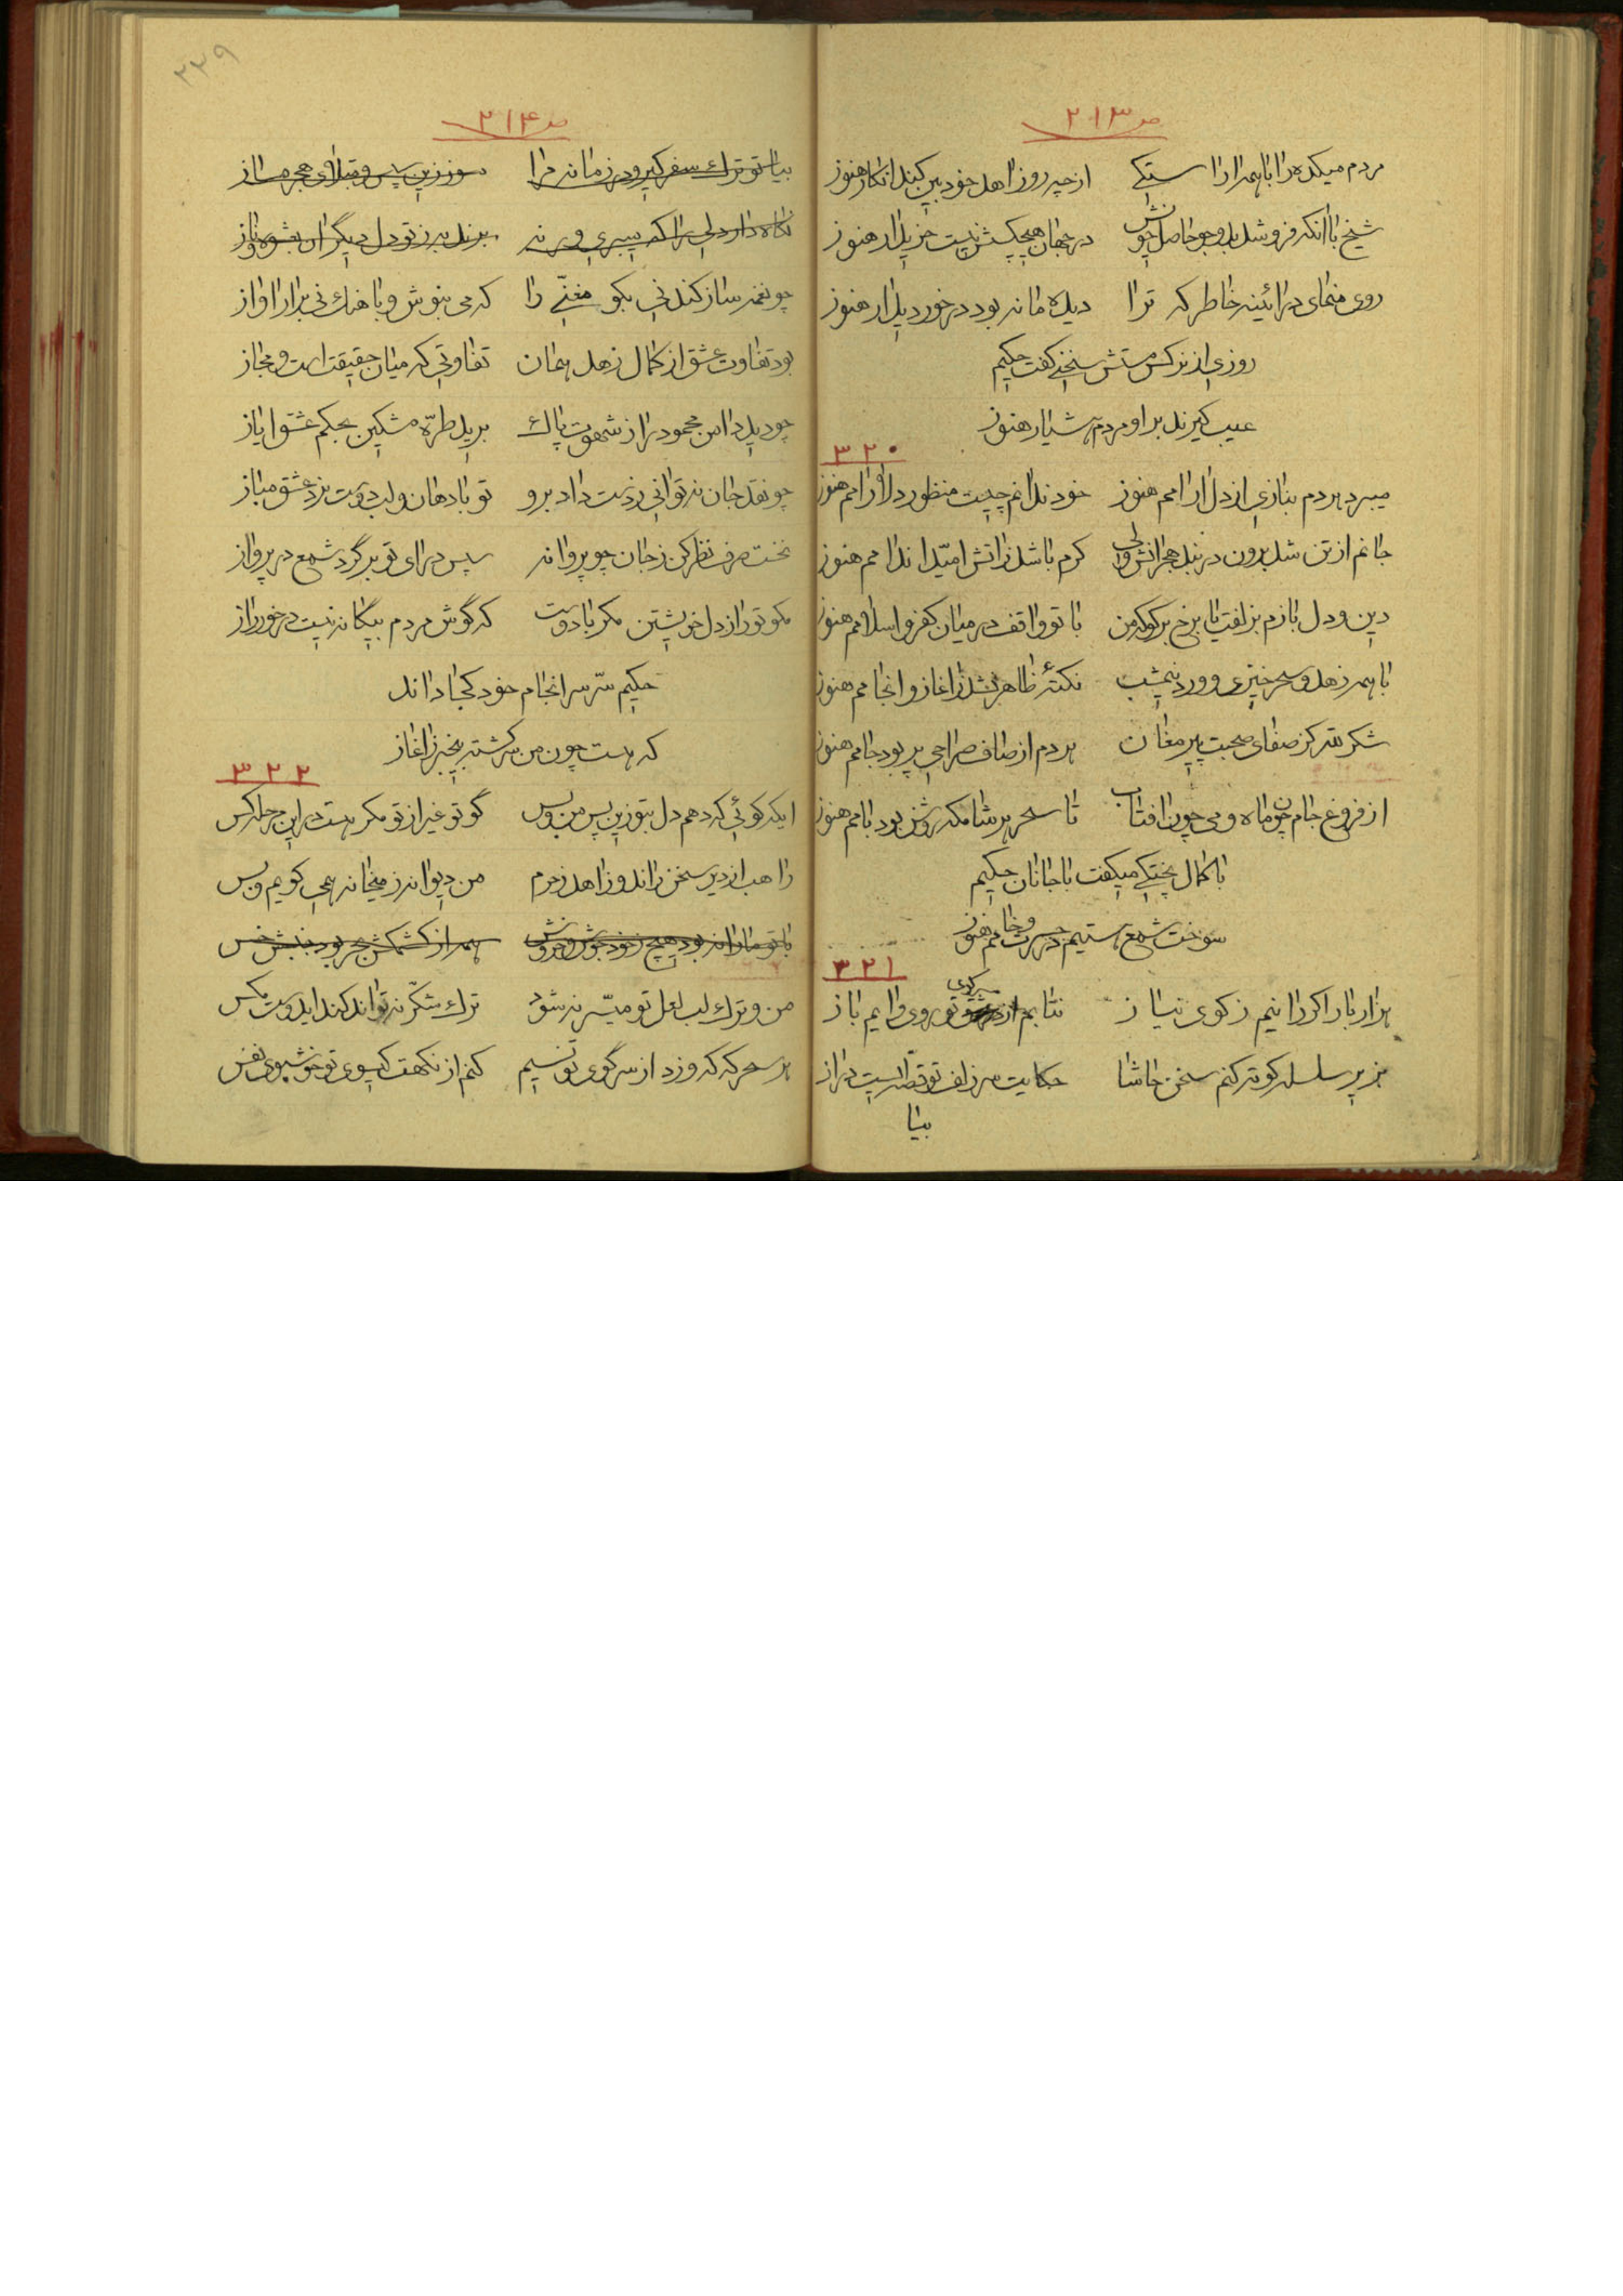 ص ۲۱۳
مردم میکده را با همه از راستکی از چه رو زاهد خود بین کند انکار هنوز
شیخ با آنکه فروشد بدو جو حاصل خویش در جهان هیچکسش نیست خریدار هنوز
روی منمای در آئینه خاطر که ترا دیده ما نه بود در خور دیدار هنوز
روزی از نرکس مستش سخنی کفت حکیم
عیب کیرند بر او مردم هشیار هنوز
۳۲۰
میبرد هر دم بنازی از دل آرامم هنوز خود ندانم چیست منظور دلارامم هنوز
جانم از تن شد برون در بند هجرانش ولی کرم باشد زاتش امید اندامم هنوز
دین و دل بازم بزلفت یا برخ برکو که من با تو واقف در میان کفر و اسلامم هنوز
با همه زهد و سحرخیزی و ورد نیمشب نکتهٔ ظاهر نشد ز آغاز و انجامم هنوز
شکر لله کز صفای صحبت پیر مغان هر دم از صاف صراحی پر بود جامم هنوز
از فروغ جام چون ماه و می چون آفتاب تا سحر هر شامکه روشن بود بامم هنوز
با کمال پختکی میکفت با جانان حکیم
سوخت شمع هستیم در حسرت و خامم هنوز
۳۲۱
هزار بار اکر رانیم ز کوی نیاز نتابم از تو روی و آیم باز
میبری
بزیر سلسله کوته کنم سخن حاشا حکایت سر زلف تو قصه‌ایست دراز
بیا
۲۳۹
ص ۲۱۴
بیا تو ترک سفر کیر و در زمانه مرا مسوز زین سپس و مبتلای هجر مساز
نگاه دار دلی را که میبری ور نه برند نیز ز تو دل دیگران بشیوه و ناز
چو نغمه ساز کند نی بکو مغنّی را که می بنوش و باهنک نی برار آواز
بود تفاوت عشق از کمال زهد همان تفاوتی که میان حقیقت است و مجاز
چو دید دامن محمود را ز شهوت پاک برید طرّه مشکین بحکم عشق ایاز
چو نقد جان نه توانی ز دست داد برو تو با دهان و لب دوست نرد عشق مباز
نخست صرف نظر کن ز جان چو پروانه سپس درای تو بر گرد شمع در پرواز
مکو تو راز دل خویشتن مکر با دوست که گوش مردم بیگانه نیست در خور راز
حکیم سّر سرانجام خود کجا داند
که هست چون من سرکشته بیخبر ز آغاز
۳۲۲
ایکه کوئی که دهم دل بتو زین پس من و بس گو تو غیر از تو مکر هست در این چرا کس
راهب از دیر سخن راند و زاهد ز حرم من دیوانه ز میخانه همی کویم و بس
با تو ما را نه بود هیچ ز خود جوش و خروش همه از کشمکش بحر بود جنبش خس
من و ترک لب لعل تو میسّر نه شود ترک شکّر نه تواند کند ایدوست مکس
هر سحرکه که وزد از سر کوی تو نسیم کنم از نکهت کیسوی تو خوشبوی نفس